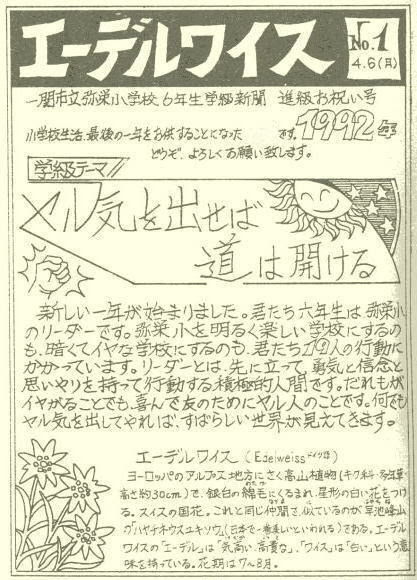 エーデルワイス
No.1
4.6(月)
一関市立弥栄小学校6年生学級新聞 進級お祝い号
小学校生活、最後の一年をお供することになった です。1992年
どうぞ、よろしくお願い致します。
学級テーマ
ヤル気を出せば
道は開ける
新しい一年が始まりました。君たち六年生は弥栄小
のリーダーです。弥栄小を明るく楽しい学校にするの
も、暗くてイヤな学校にするのも、君たち19人の行動に
かかっています。リーダーとは、先に立って、勇気と信念と
思いやりを持って行動する積極的人間です。だれもが
イヤがることでも、喜んで友のためにヤル人のことです。何でも
ヤル気を出してやれば、すばらしい世界が見えてきます。
エーデルワイス (Edelweiss ドイツ語)
ヨーロッパのアルプス地方にさく高山植物(キク科・多年草
高さ約30cm)で、銀白の綿毛にくるまれ、星形の白い花をつけ
る。スイスの国花。これと同じ仲間で、似ているのが早池峰山
の「ハヤチネウスユキソウ」(日本で一番美しいといわれる)である。エーデル
ワイスの「エーデル」は「気高い、高貴な」、「ワイス」は「白い」という意
味を持っている。花期は7~8月。